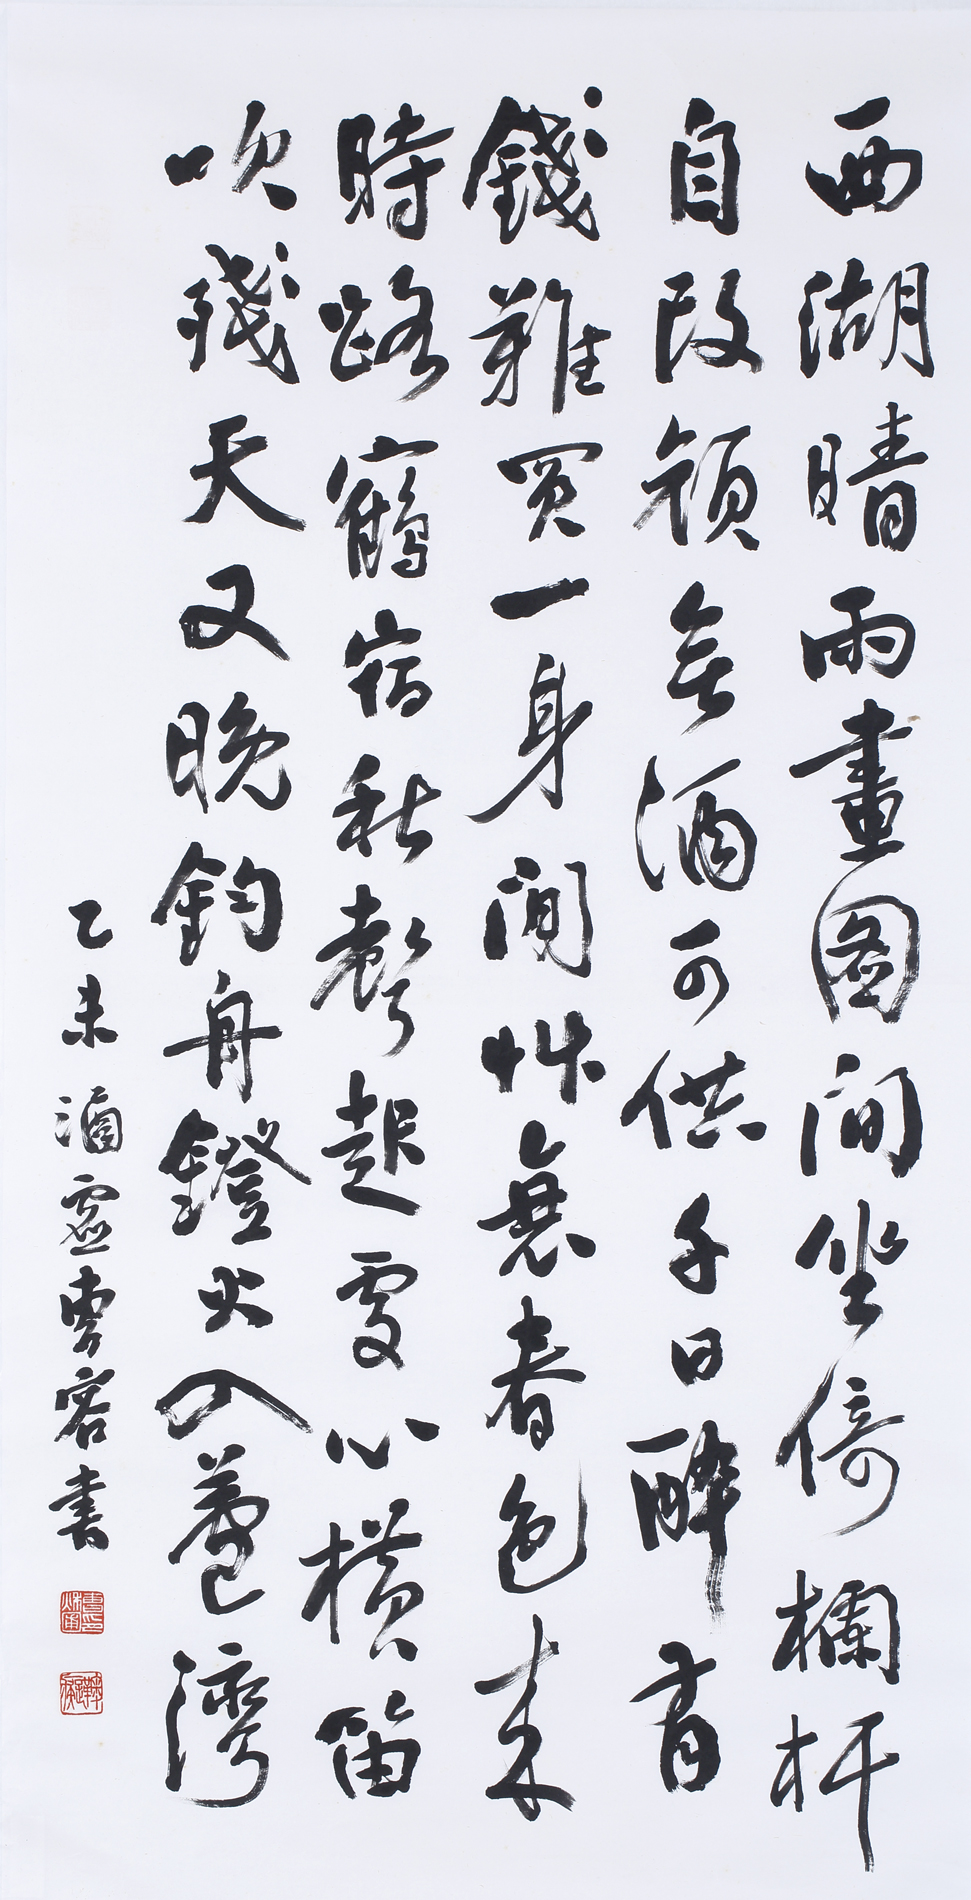 西湖晴雨畫圖間坐倚欄杆
自改顏無酒可供千日醉有
錢難買一身閒草無春色來
時路鶴宿秋聲起處山橫笛
吹殘天又晚釣舟鐙火入蘆灣
乙未 酒虛曹容書